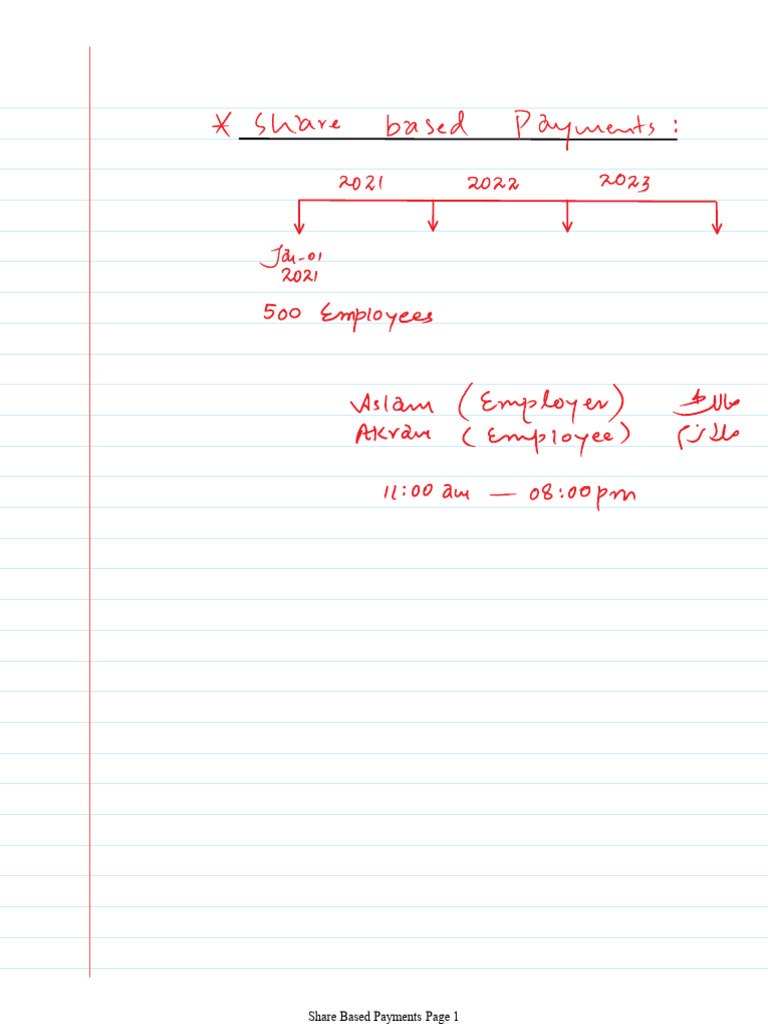 * Share based Payments:
2021 2022 2023
Jan-01
2021
500 Employees
Aslam (Employer) مالک
Akram (Employee) ملازم
11:00 am — 08:00pm
Share Based Payments Page 1